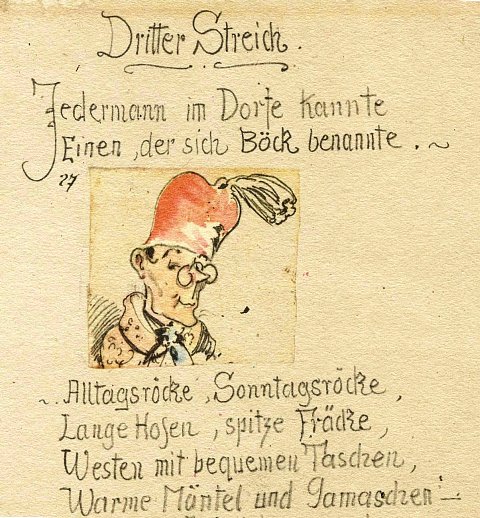 Dritter Streich.
Jedermann im Dorfe kannte
Einen, der sich Böck benannte. ~
27
~ Alltagsröcke, Sonntagsröcke,
Lange Hosen, spitze Fräcke,
Westen mit bequemen Taschen,
Warme Mäntel und Gamaschen –